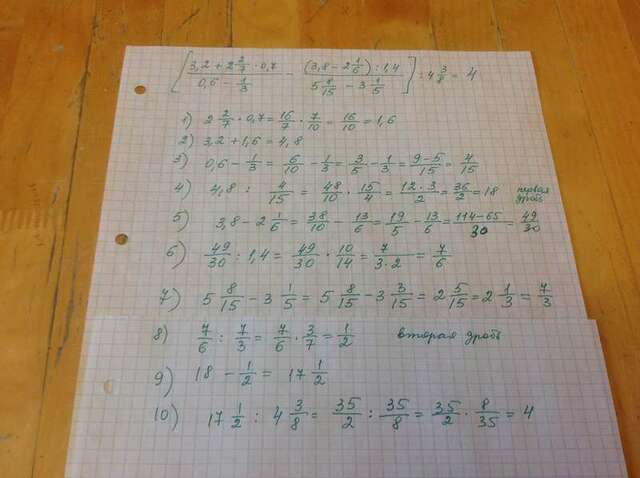 [(3,2 + 2 2/7 · 0,7)/(0,6 - 1/3) - ((3,8 - 2 1/6) : 1,4)/(5 8/15 - 3 1/5)] : 4 3/8 = 4
1) 2 2/7 · 0,7 = 16/7 · 7/10 = 16/10 = 1,6
2) 3,2 + 1,6 = 4,8
3) 0,6 - 1/3 = 6/10 - 1/3 = 3/5 - 1/3 = (9-5)/15 = 4/15
4) 4,8 : 4/15 = 48/10 · 15/4 = (12·3)/2 = 36/2 = 18 первая дробь
5) 3,8 - 2 1/6 = 38/10 - 13/6 = 19/5 - 13/6 = (114-65)/30 = 49/30
6) 49/30 : 1,4 = 49/30 · 10/14 = 7/(3·2) = 7/6
7) 5 8/15 - 3 1/5 = 5 8/15 - 3 3/15 = 2 5/15 = 2 1/3 = 7/3
8) 7/6 : 7/3 = 7/6 · 3/7 = 1/2 вторая дробь
9) 18 - 1/2 = 17 1/2
10) 17 1/2 : 4 3/8 = 35/2 : 35/8 = 35/2 · 8/35 = 4